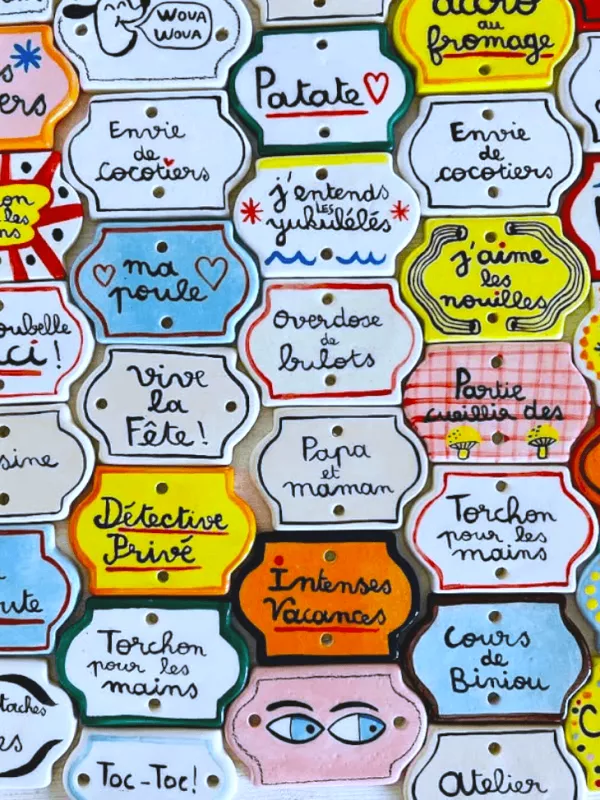 WOUA
WOUA
accro
au
fromage
Patate
Envie
de
cocotiers
Envie
de
cocotiers
j'entends
LES
yukulélés
ma
poule
j'aime
les
nouilles
overdose
de
bulots
ci !
vive
la
Fête !
Partie
cueillir des
Papa
et
maman
Détective
Privé
Torchon
pour les
mains
Intenses
Vacances
Torchon
pour les
mains
Cours
de
Biniou
Toc-Toc!
atelier